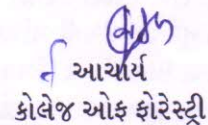 આચાર્ય
કોલેજ ઓફ ફોરેસ્ટ્રી